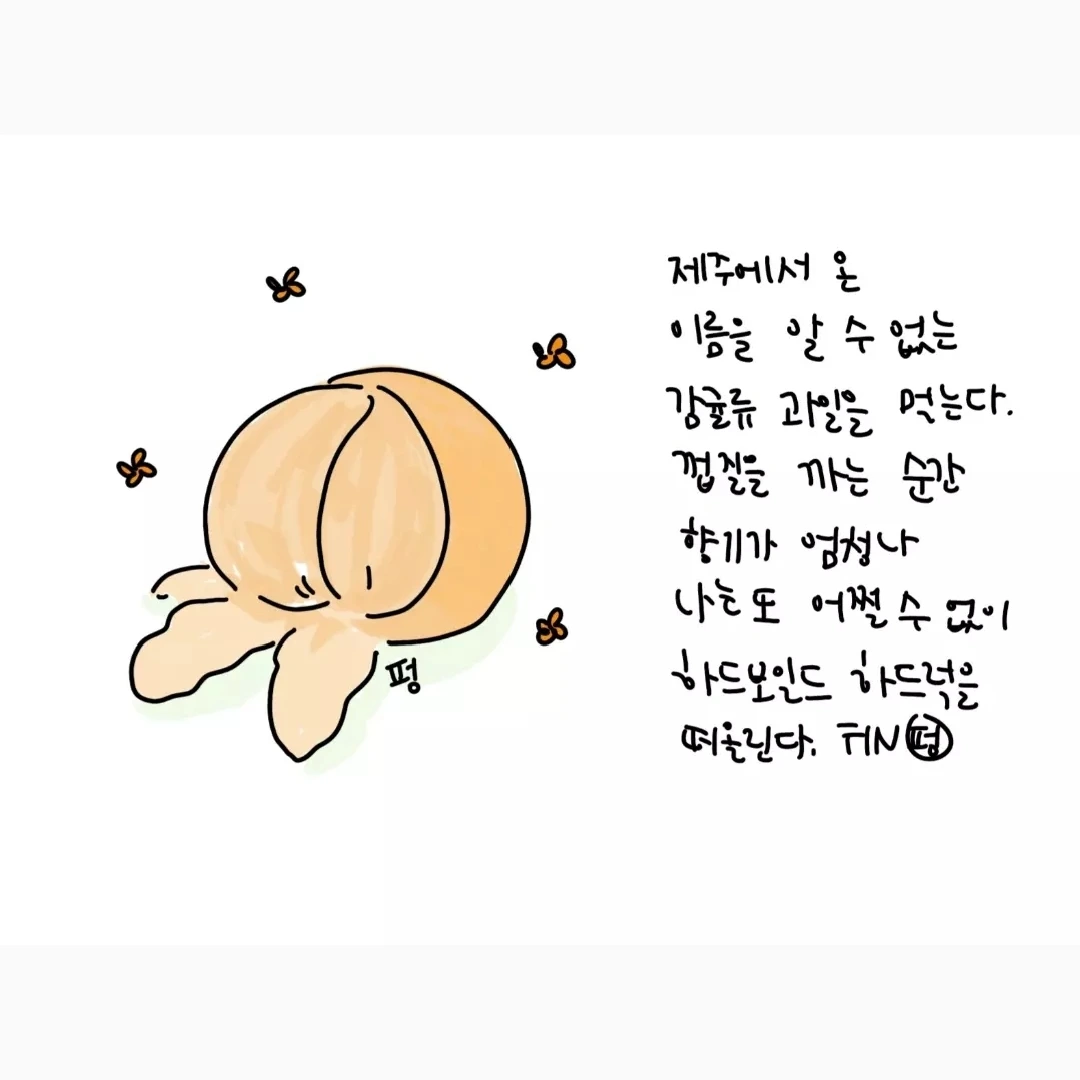 제주에서 온
이름을 알 수 없는
감귤류 과일을 먹는다.
껍질을 까는 순간
향기가 엄청나
나는 또 어쩔 수 없이
하드보일드 하드럭을
떠올린다. FIN 펑
펑